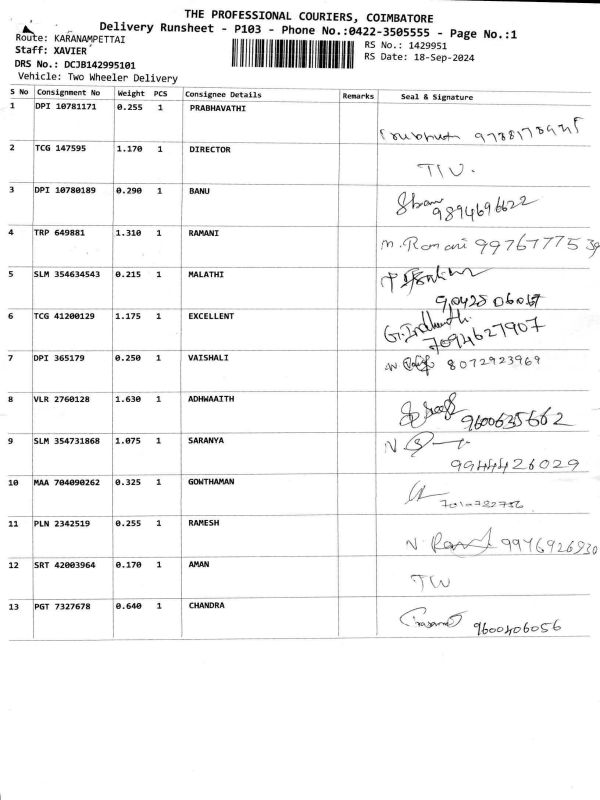 THE PROFESSIONAL COURIERS, COIMBATORE
Delivery Runsheet - P103 - Phone No.:0422-3505555 - Page No.:1
Route: KARANAMPETTAI
Staff: XAVIER
DRS No.: DCJB142995101
Vehicle: Two Wheeler Delivery
RS No.: 1429951
RS Date: 18-Sep-2024
S No Consignment No Weight PCS Consignee Details Remarks Seal & Signature
1 DPI 10781171 0.255 1 PRABHAVATHI
2 TCG 147595 1.170 1 DIRECTOR
3 DPI 10780189 0.290 1 BANU 9894696622
4 TRP 649881 1.310 1 RAMANI M. Ramani 9976777539
5 SLM 354634543 0.215 1 MALATHI
6 TCG 41200129 1.175 1 EXCELLENT 7094627907
7 DPI 365179 0.250 1 VAISHALI 8072923969
8 VLR 2760128 1.630 1 ADHWAAITH 9600635662
9 SLM 354731868 1.075 1 SARANYA 9944426029
10 MAA 704090262 0.325 1 GOWTHAMAN
11 PLN 2342519 0.255 1 RAMESH 9976926930
12 SRT 42003964 0.170 1 AMAN
13 PGT 7327678 0.640 1 CHANDRA 9600406056